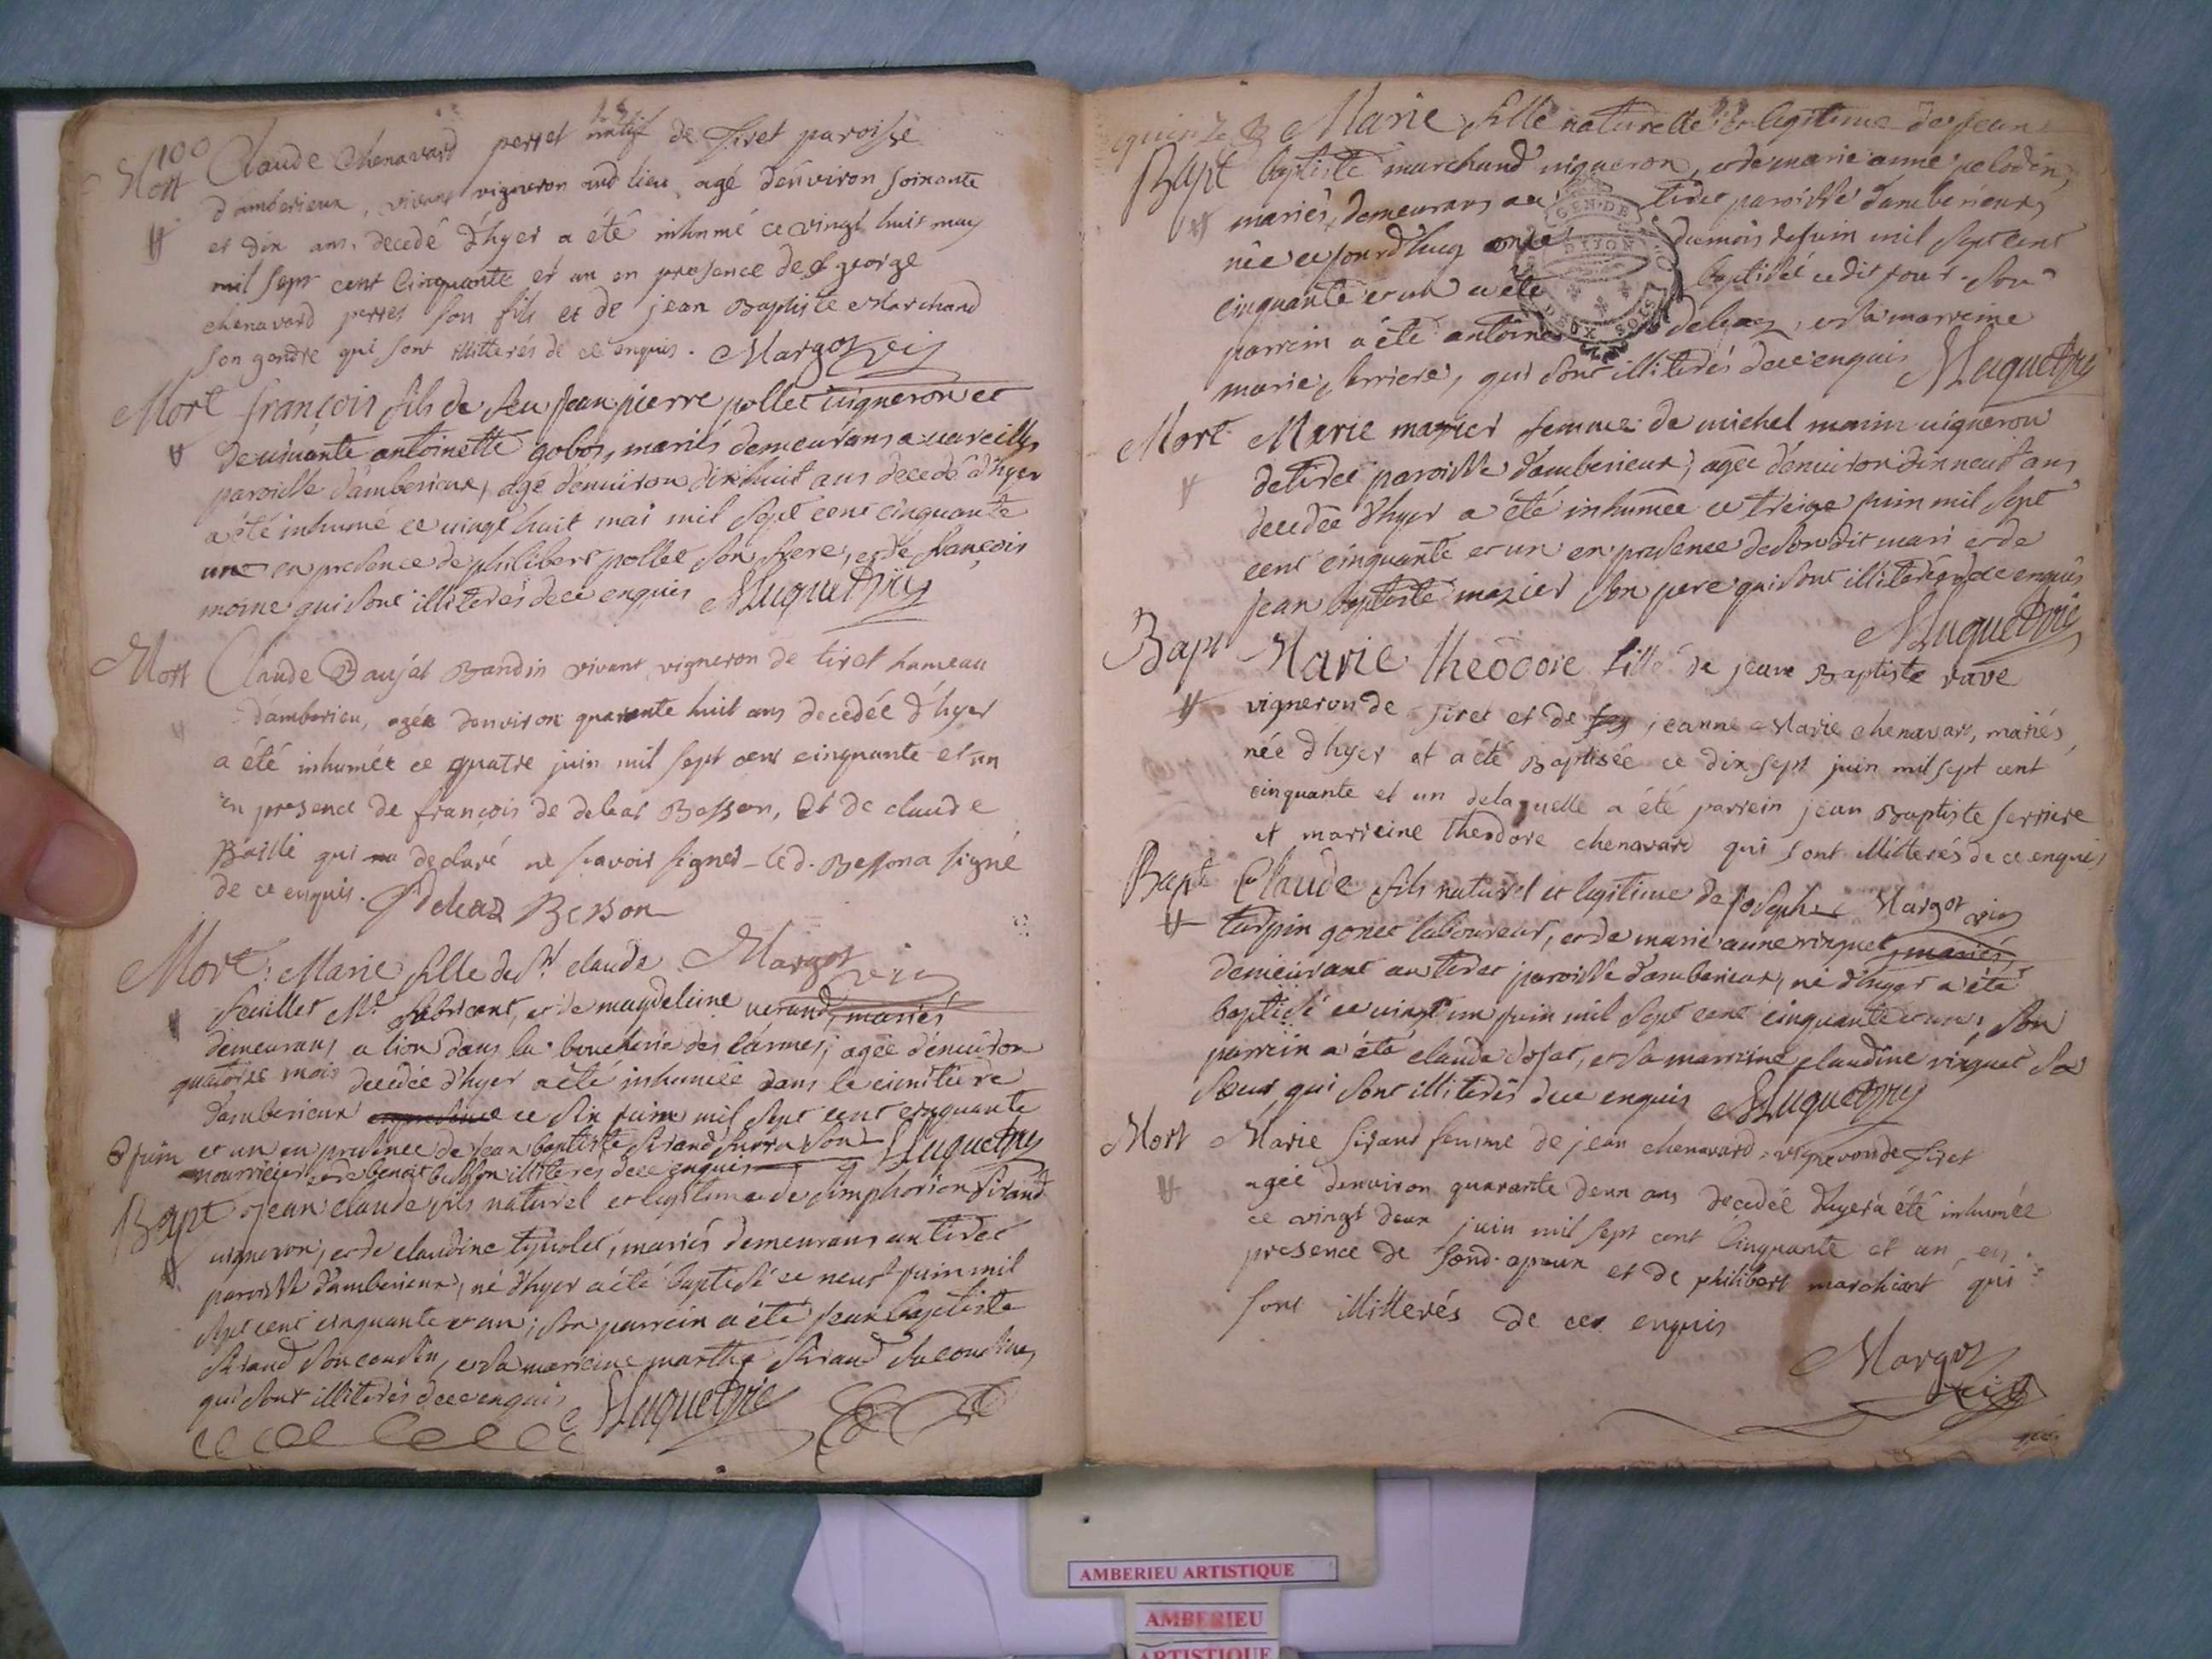 Mort Claude Chenavard perret natif de Tiret paroisse
d'amberieux, vivant vigneron aud lieu agé d'environ soixante
et dix ans, decedé d'hyer a été inhumé ce vingt huit may
mil sept cent cinquante et un en presence de george
chenavard perret son fils et de jean Baptiste Marchand
son gendre qui sont illitterés de ce enquis. Margot vic
Mort françois fils de feu jean pierre pollet vigneron et
de vivante antoinette gobos, mariés demeurans a vareilles
paroisse d'amberieux, agé d'enuiron dixhuit ans decedé d'hyer
a été inhumé ce vingt huit mai mil sept cent cinquante
un en presence de philibert pollet son frere, et de françois
moine qui sont illiterés de ce enquis
Mort Claude Baujat Bandin vivant vigneron de tiret hameau
d'amberieu, agée d'environ quarante huit ans decedée d'hyer
a été inhumée ce quatre juin mil sept cent cinquante et un
en presence de françois de deleas Besson, et de claude
qui declaré ne scavoir signer le d. Besson a signé
de ce enquis. deleaz Besson
Margot vic
Mort: Marie fille de Sr claude
feuillet Md fabricant, et de magdeleine verand mariés
demeurans a lion dans la boucherie des carmes, agée d'enuiron
quatorze mois decedée d'hyer a été inhumée dans le cimetiere
d'amberieux ce six juin mil sept cent cinquante
et un en presence de jean baptiste sirand son
nourricier et de benoit besson illiteres de ce enquis
Bapt jean claude fils naturel et legitime de simphorien sirand
vigneron, et de claudine, mariés demeurans au tiret
paroisse d'amberieux, né d'hyer a été baptisé ce neuf juin mil
sept cent cinquante et un; son parrein a été jean baptiste
sirand son cousin, et sa marreine marthe sirand sa cousine,
qui sont illiterés de ce enquis
Marie fille naturelle et legitime de jean
Bapt baptiste marchand vigneron, et de marie anne pelodin,
mariés, demeurans au tiret paroisse d'amberieux
née ce jourd'huy onze du mois de juin mil sept cent
cinquante et un a été baptisée cedit jour. son
parrein a été antoine deleaz, et sa marreine
marie serriere, qui sont illiterés de ce enquis
Mort Marie mazier femme de michel monin vigneron
de tiret paroisse d'amberieux, agée d'enuiron dixneuf ans
decedée d'hyer a été inhumée ce treize juin mil sept
cent cinquante et un en presence de son dit mari et de
jean baptiste mazier son pere qui sont illiterés de ce enquis
Bapt Marie theodore fille de jean Baptiste rave
vigneron de Tiret et de jeanne Marie chenavard, mariés,
née d'hyer et a été Baptisée ce dix sept juin mil sept cent
cinquante et un de laquelle a été parrein jean Baptiste serriere
et marreine theodore chenavard qui sont illitterés de ce enquis
Margot vic
Bapt Claude fils naturel et legitime de joseph
tarpin gonet laboureur, et de marie anne vinquet, mariés,
demeurant au tiret paroisse d'amberieux, né d'hyer a été
baptisé ce vingt un juin mil sept cent cinquante et un; son
parrein a été claude, et sa marreine claudine vinquet sa
sœur, qui sont illiterés de ce enquis
Mort Marie sirand femme de jean chenavard vigneron de Tiret
agée d'environ quarante deux ans decedée d'hyer a été inhumée
ce vingt deux juin mil sept cent cinquante et un en
presence de sond. epoux et de philibert marchant qui
sont illitterés de ce enquis
Margot
vic
AMBERIEU ARTISTIQUE
AMBERIEU
ARTISTIQUE